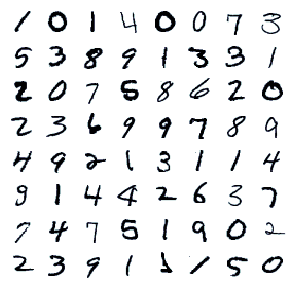 1 0 1 4 0 0 7 3
5 3 8 9 1 3 3 1
2 0 7 5 8 6 2 0
2 3 6 9 9 7 8 9
4 9 2 1 3 1 1 4
9 1 4 4 2 6 3 7
7 4 7 5 1 9 0 2
2 3 9 1 1 1 5 0